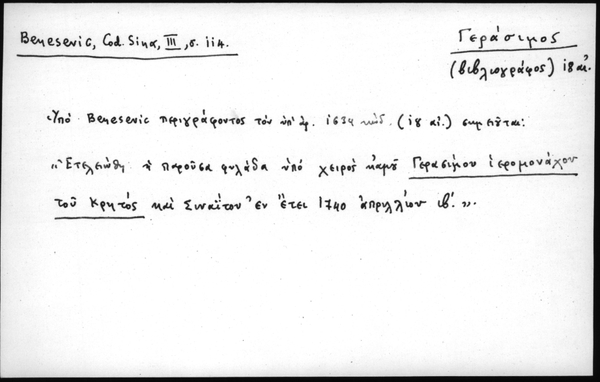 Benesevic, Cod. Sina, III, σ. 114.
Γεράσιμος
(βιβλιογράφος) 18 αἰ.
Ὑπὸ Benesevic περιγράφοντος τὸν ὑπ' ἀρ. 1634 κώδ. (18 αἰ.) σημειοῦται:
„Ἐτελειώθη ἡ παροῦσα φυλάδα ὑπὸ χειρὸς κἀμοῦ Γερασίμου ἱερομονάχου
τοῦ Κρητός καὶ Σιναΐτου ἐν ἔτει 1740 ἀπριλλίου ιβ'.„.